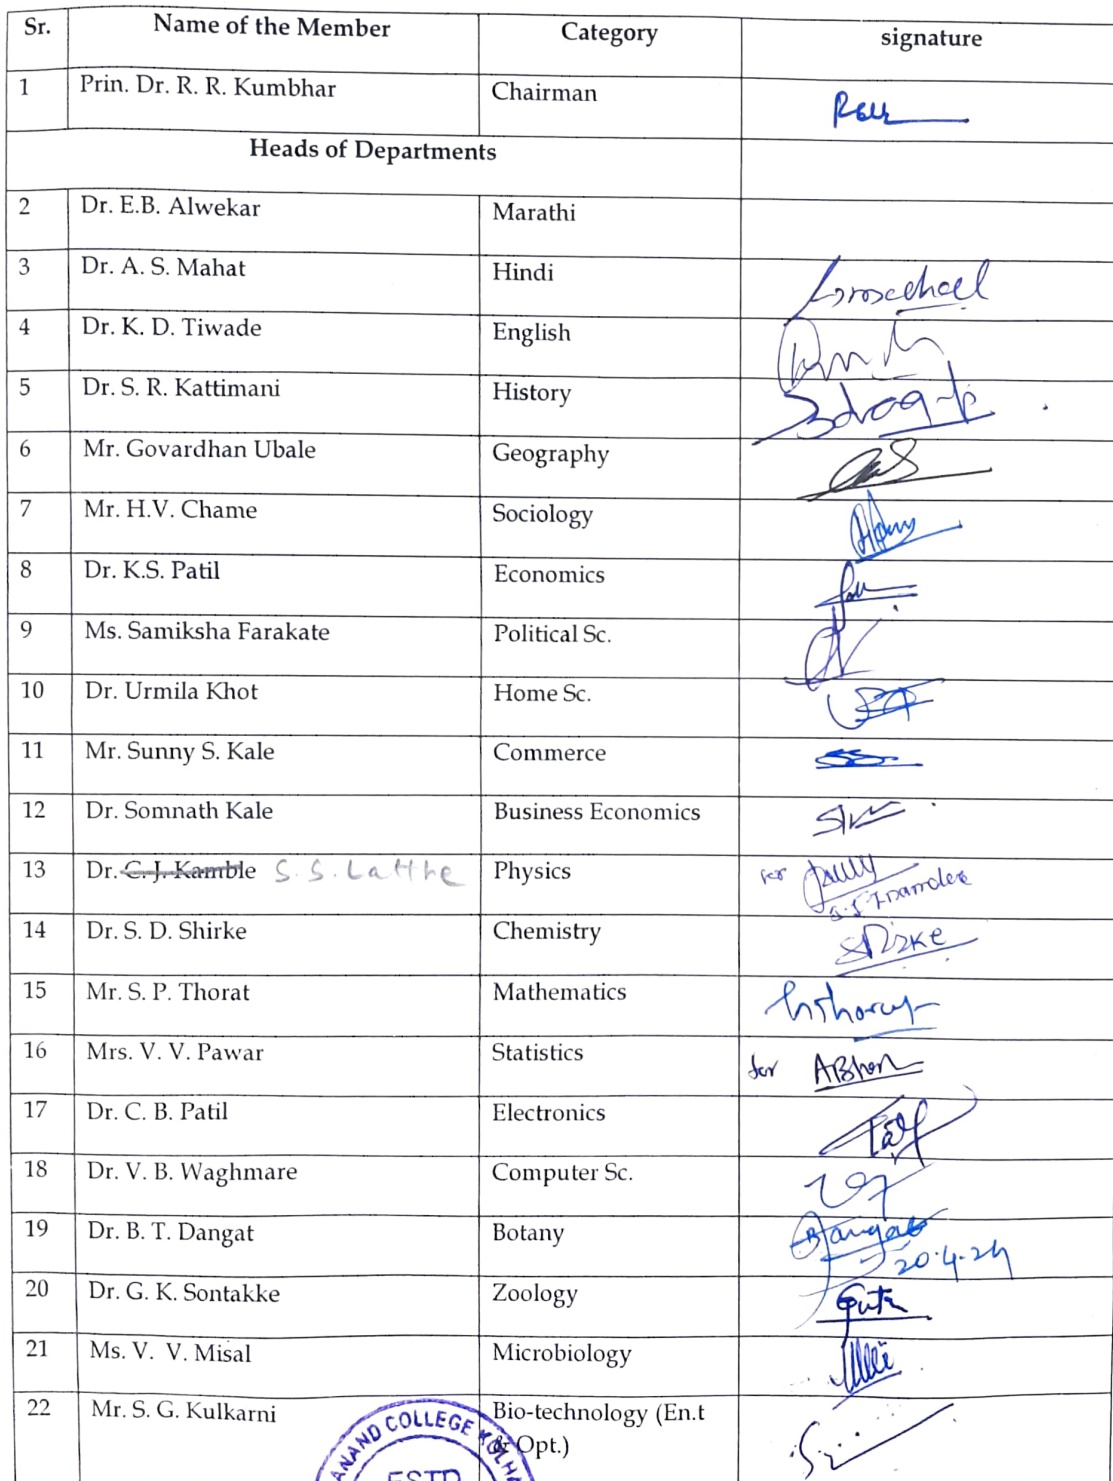 Sr. Name of the Member Category signature
1 Prin. Dr. R. R. Kumbhar Chairman
Heads of Departments
2 Dr. E.B. Alwekar Marathi
3 Dr. A. S. Mahat Hindi
4 Dr. K. D. Tiwade English
5 Dr. S. R. Kattimani History
6 Mr. Govardhan Ubale Geography
7 Mr. H.V. Chame Sociology
8 Dr. K.S. Patil Economics
9 Ms. Samiksha Farakate Political Sc.
10 Dr. Urmila Khot Home Sc.
11 Mr. Sunny S. Kale Commerce
12 Dr. Somnath Kale Business Economics
13 Dr. C. J. Kamble S. S. Latthe Physics for
14 Dr. S. D. Shirke Chemistry
15 Mr. S. P. Thorat Mathematics
16 Mrs. V. V. Pawar Statistics for
17 Dr. C. B. Patil Electronics
18 Dr. V. B. Waghmare Computer Sc.
19 Dr. B. T. Dangat Botany Dangat
20.4.24
20 Dr. G. K. Sontakke Zoology
21 Ms. V. V. Misal Microbiology
22 Mr. S. G. Kulkarni Bio-technology (En.t
& Opt.)
ANAND COLLEGE KOLHA
ESTD